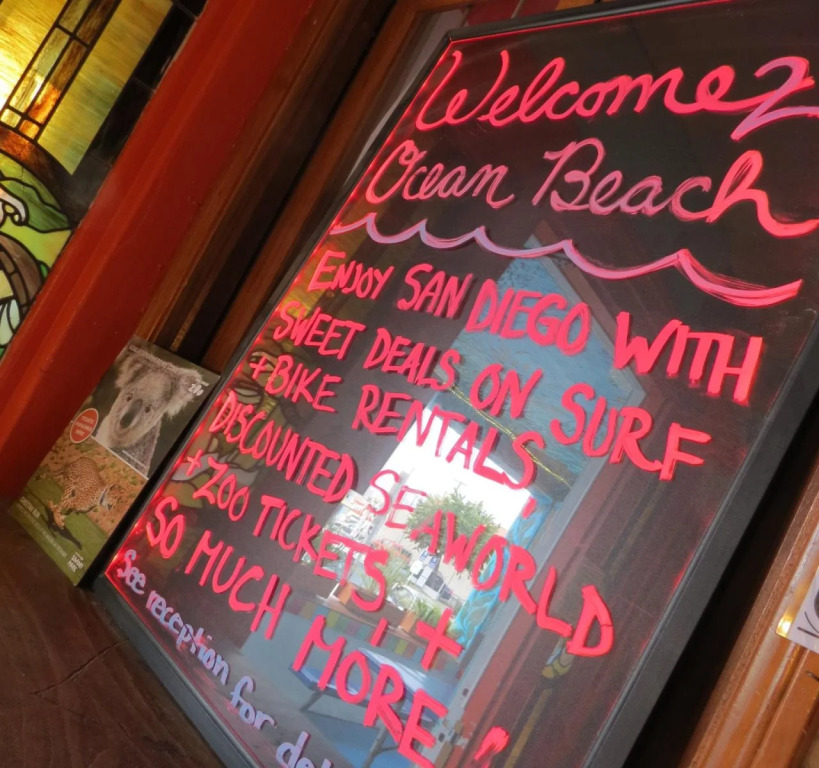 Welcome 2
Ocean Beach
ENJOY SAN DIEGO WITH
SWEET DEALS ON SURF
+ BIKE RENTALS,
DISCOUNTED SEAWORLD
+ ZOO TICKETS, +
SO MUCH MORE!
See reception for